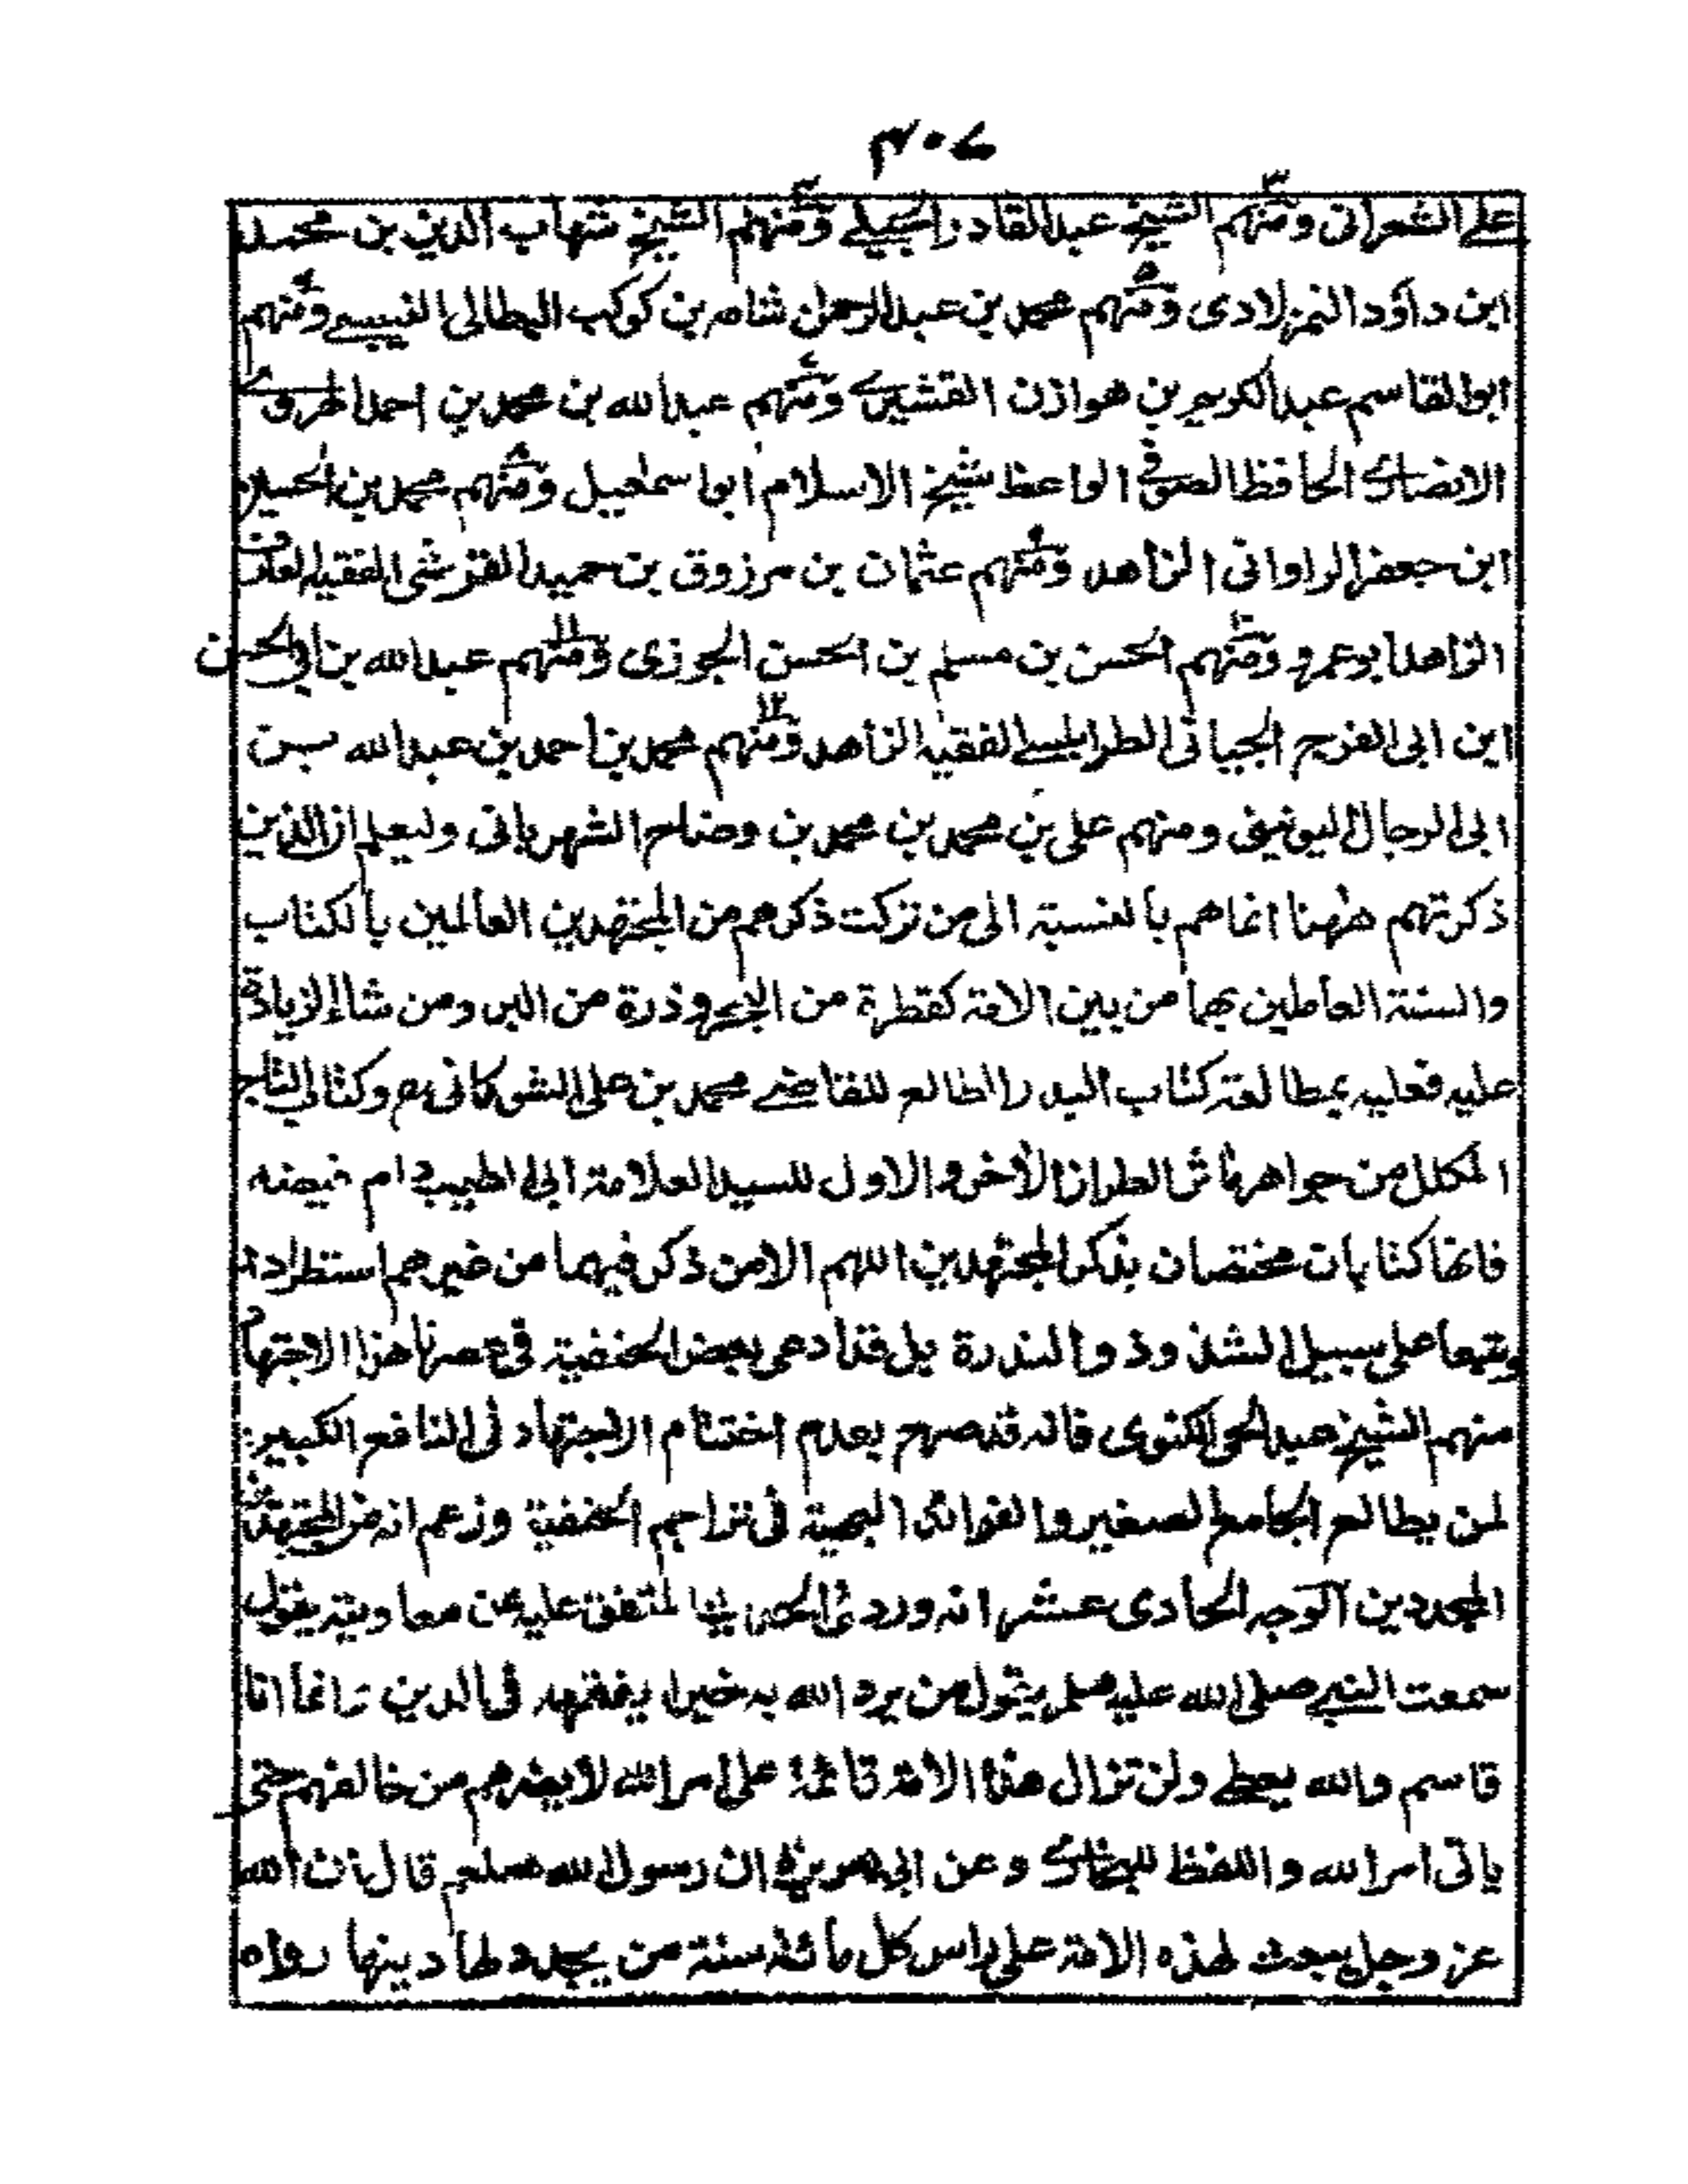 ٣٠٤
على الشعرانى ومنهم الشيخ عبد القادر الجيلى ومنهم الشيخ شهاب الدين بن محمد
ابن داؤد المنزلادى ومنهم محمد بن عبد الرحمن شامر بن كوكب البطالى ومنهم
ابو القاسم عبد الكريم بن هوازن القشيرى ومنهم عبد الله بن محمد بن احمد الهروى
الانصارى الحافظ الصوفى الواعظ شيخ الاسلام ابو اسمعيل ومنهم محمد بن الحسين
ابن جعفر الراوانى الزاهد ومنهم عثمان بن مرزوق بن حميد القرشى الفقيه العارف
الزاهد ابو عمرو ومنهم الحسن بن مسلم بن الحسن الجوزى ومنهم عبد الله بن ابى الحسن
ابن ابى الفرج الجبائى الطرابلسى الفقيه الزاهد ومنهم محمد بن احمد بن عبد الله بن
ابى الرجال اليونينى ومنهم على بن محمد بن محمد بن وضاح الشهربانى وليعلم ان الذين
ذكرتهم ههنا انما هم بالنسبة الى من تركت ذكرهم من المجتهدين العالمين بالكتاب
والسنة العاملين بهما من بين الامة كقطرة من البحر وذرة من البر ومن شاء الزيادة
عليه فعليه بمطالعة كتاب البدر الطالع للقاضى محمد بن على الشوكانى رح وكتاب التاج
المكلل من جواهر مآثر الطراز الآخر والاول للسيد العلامة ابى الطيب دام فيضه
فانهما كتابان مختصان بذكر المجتهدين اللهم الا من ذكر فيهما من غيرهم استطرادا
وتبعا على سبيل الشذوذ والندرة بل قد ادعى بعض الحنفية فى عصرنا هذا الاجتهاد
منهم الشيخ عبد الحى الكنوى فانه قد صرح بعدم اختتام الاجتهاد فى النافع الكبير
لمن يطالع الجامع الصغير والفوائد البهية فى تراجم الحنفية وزعم انه من المجتهدين
المجددين الوجه الحادى عشر انه ورد فى الحديث المتفق عليه عن معاوية يقول
سمعت النبى صلى الله عليه وسلم يقول من يرد الله به خيرا يفقهه فى الدين وانما انا
قاسم والله يعطى ولن تزال هذه الامة قائمة على امر الله لا يضرهم من خالفهم حتى
ياتى امر الله واللفظ للبخارى وعن ابى هريرة ان رسول الله صلعم قال ان الله
عز وجل يبعث لهذه الامة على راس كل مائة سنة من يجدد لها دينها رواه